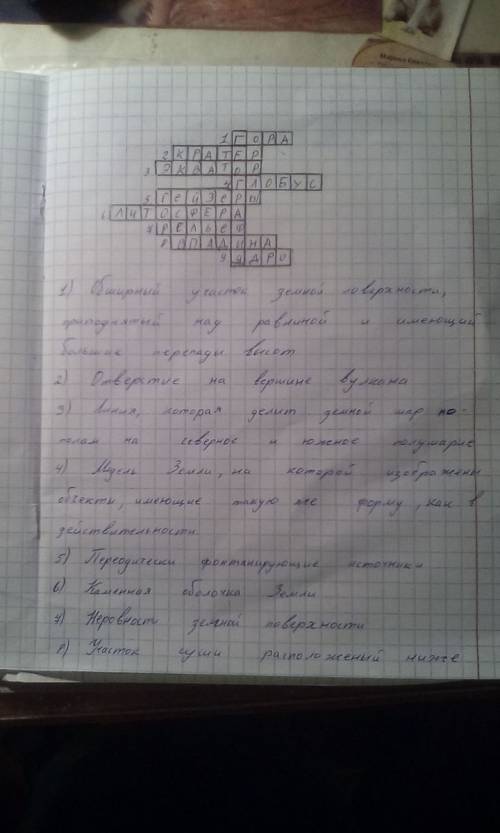 1 ГОРА
2 КРАТЕР
3 ЭКВАТОР
4 ГЛОБУС
5 ГЕЙЗЕРЫ
6 ЛИТОСФЕРА
7 РЕЛЬЕФ
8 ВПАДИНА
9 ЯДРО
1) Обширный участок земной поверхности,
приподнятый над равниной и имеющий
большие перепады высот
2) Отверстие на вершине вулкана
3) Линия, которая делит земной шар по-
полам на северное и южное полушарие
4) Мдель Земли, на которой изображены
объекти, имеющие такую же форму, как в
действительности.
5) Переодически фонтанирующие источники
6) Каменная оболочка Земли
7) Неровности земной поверхности
8) Участок суши расположеный ниже